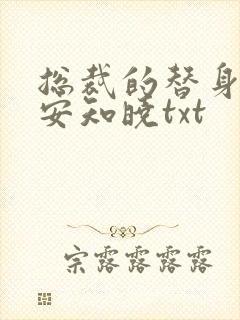 总裁的替身
安知晓txt
宗露露露露